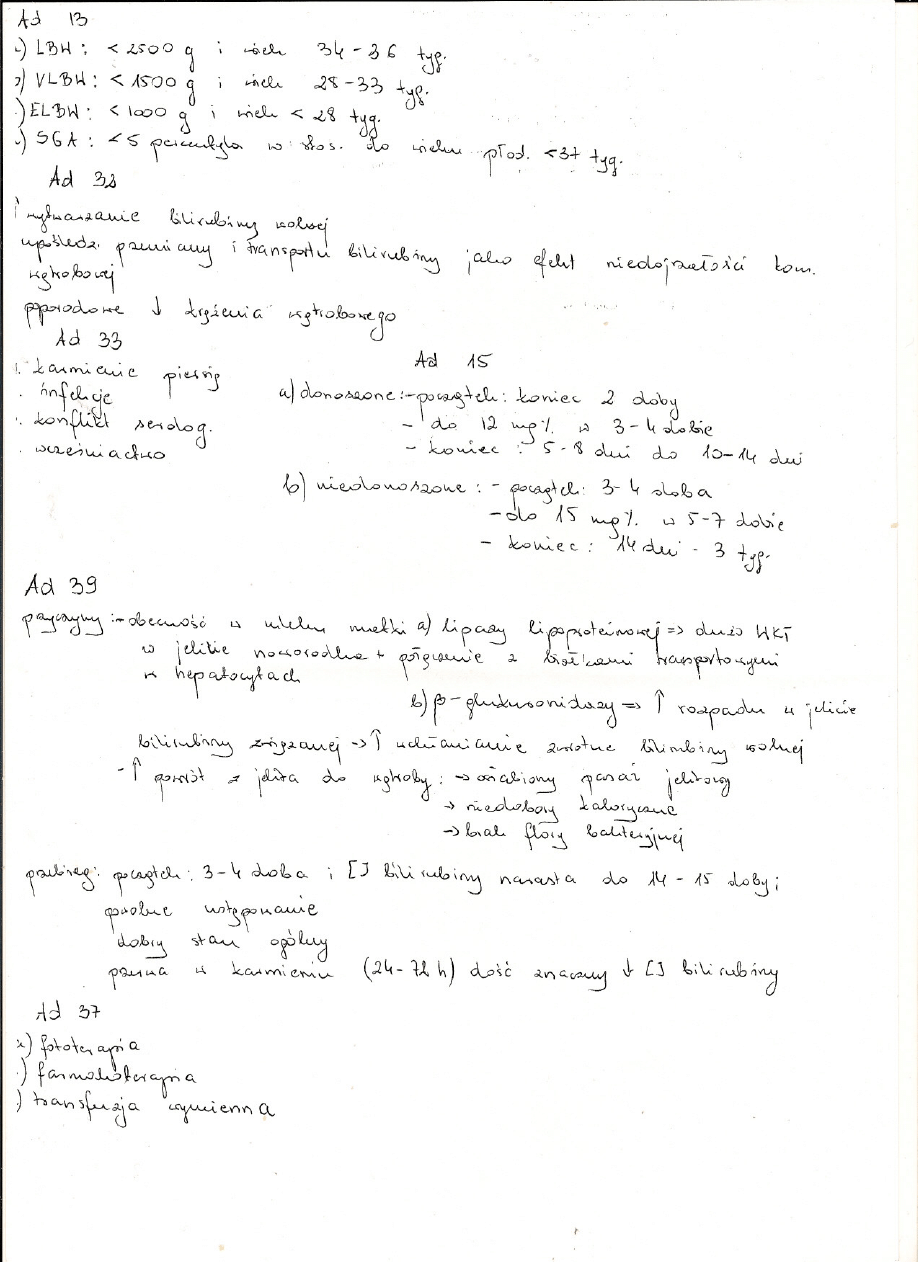 Ad 13
1) LBW : < 2500 g i wiek 34-36 tyg.
2) VLBW : < 1500 g i wiek 28-33 tyg.
) ELBW : < 1000 g i wiek < 28 tyg.
) SGA : < 5 percentyla w stos. do wieku płod. < 37 tyg.
Ad 32
↑ wytwarzanie bilirubiny wolnej
upośledz. przemiany i transportu bilirubiny jako efekt niedojrzałości kom.
wątrobowej
poporodowe ↓ krążenia wątrobowego
Ad 33
. karmienie piersią
. infekcje
. konflikt serolog.
. wcześniactwo
Ad 15
a) donoszone :- początek : koniec 2 doby
- do 12 mg% w 3-4 dobie
- koniec : 5-8 dni do 10-14 dni
b) niedonoszone : - początek : 3-4 doba
- do 15 mg% w 5-7 dobie
- koniec : 14 dni - 3 tyg.
Ad 39
przyczyny :- obecność w mleku matki a) lipazy lipoproteinowej => dużo WKT
w jelicie noworodka + połączenie z białkami transportowymi
w hepatocytach
b) β-glukuronidazy => ↑ rozpadu w jelicie
bilirubiny związanej → ↑ wchłanianie zwrotne bilirubiny wolnej
- ↑ powrót z jelita do wątroby : → osłabiony pasaż jelitowy
→ niedobory kaloryczne
→ brak flory bakteryjnej
przebieg : początek : 3-4 doba i [] bilirubiny narasta do 14-15 doby ;
powolne ustępowanie
dobry stan ogólny
przerwa w karmieniu (24-72 h) dość znaczny ↓ [] bilirubiny
Ad 37
) fototerapia
) farmakoterapia
) transfuzja wymienna